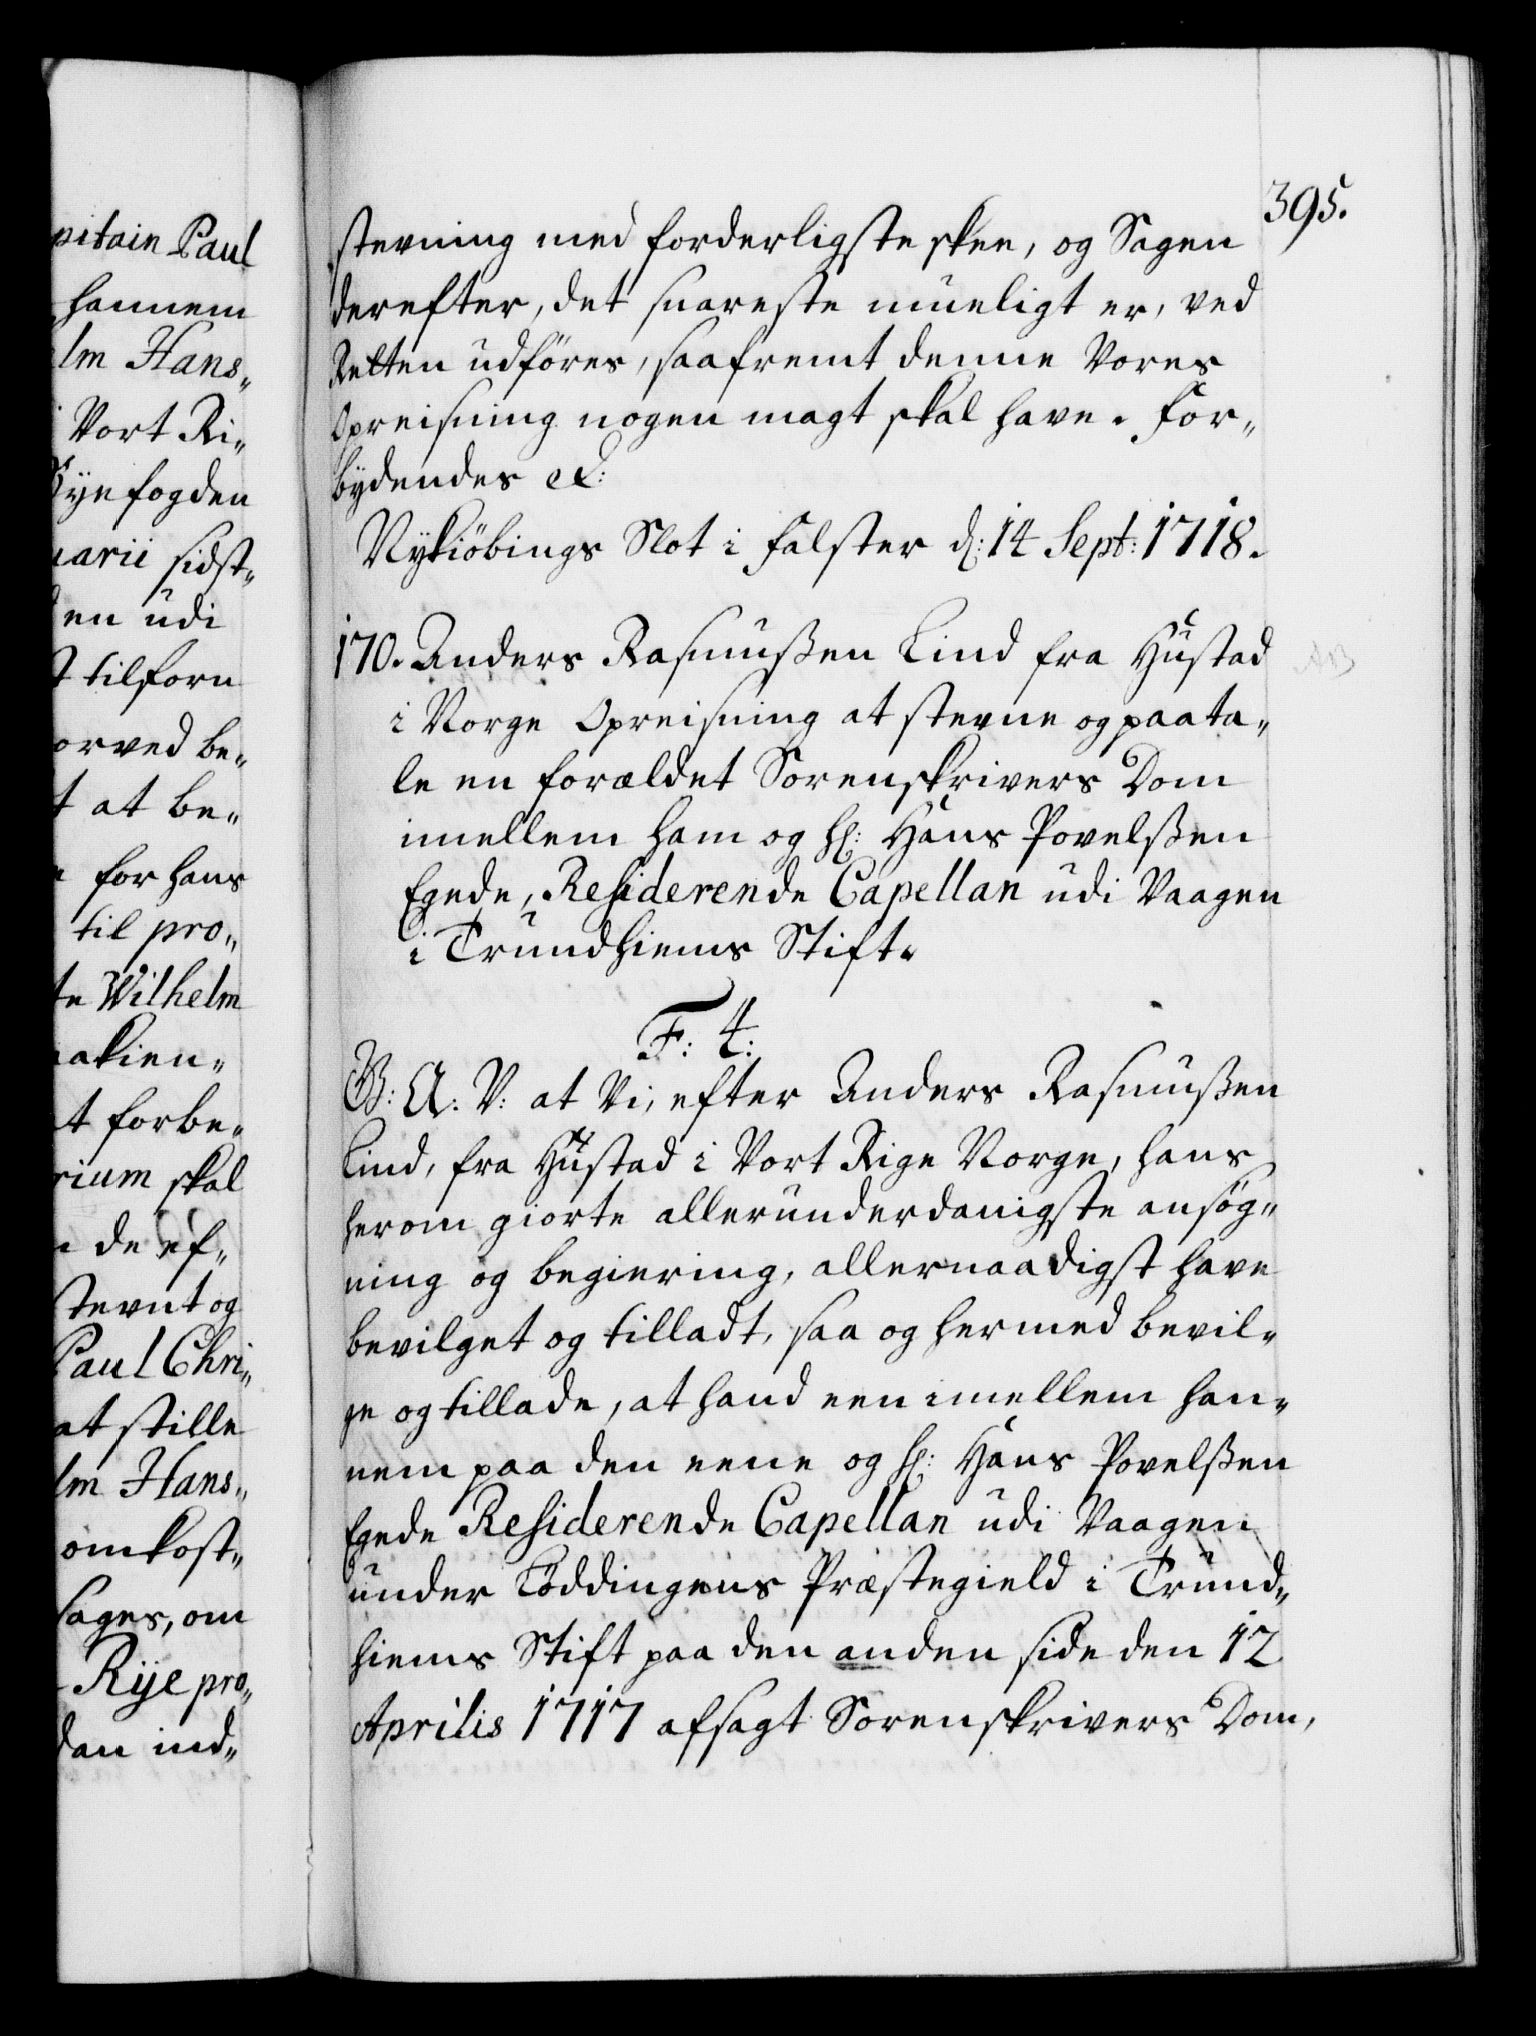 pitain Paul
hannem
lm Hans„
Vort Ri„
Bÿefogden
uarii sidst„
en udi
t tilforn
orved be„
t at be„
for hans
til pro„
te Wilhelm
akien„
t forbe„
rium skal
de ef„
stevnt og
Paul Chri„
at stille
lm Hans„
omkost„
sages, om
Rÿe pro„
dan ind„
395.
stevning med forderligste skee, og Sagen
derefter, det snareste mueligt er, ved
Retten udföres, saafremt denne Vores
Opreisning nogen magt skal have. For„
bydendes etc:
Nykiöbings Slot i Falster d: 14 Sept: 1718.
170. Anders Rasmußen Lind fra Hustad
i Norge Opreisning at stevne og paata„
le en forældet Sorenskrivers Dom
imellem ham og Hr: Hans Povelßen
Egede, Residerende Capellan udi Vaagen
i Trundhiems Stift.
F: 4:
G: A: V: at Vi, efter Anders Rasmußen
Lind, fra Hustad i Vort Rige Norge, hans
herom giorte allerunderdanigste ansög„
ning og begiering, allernaadigst have
bevilget og tilladt, saa og hermed bevil„
ge og tillade, at hand een imellem han„
nem paa den eene og Hr: Hans Povelßen
Egede Residerende Capellan udi Vaagen
under Löddingens Præstegield i Trund„
hiems Stift paa den anden side den 12
Aprilis 1717 afsagt Sorenskrivers Dom,